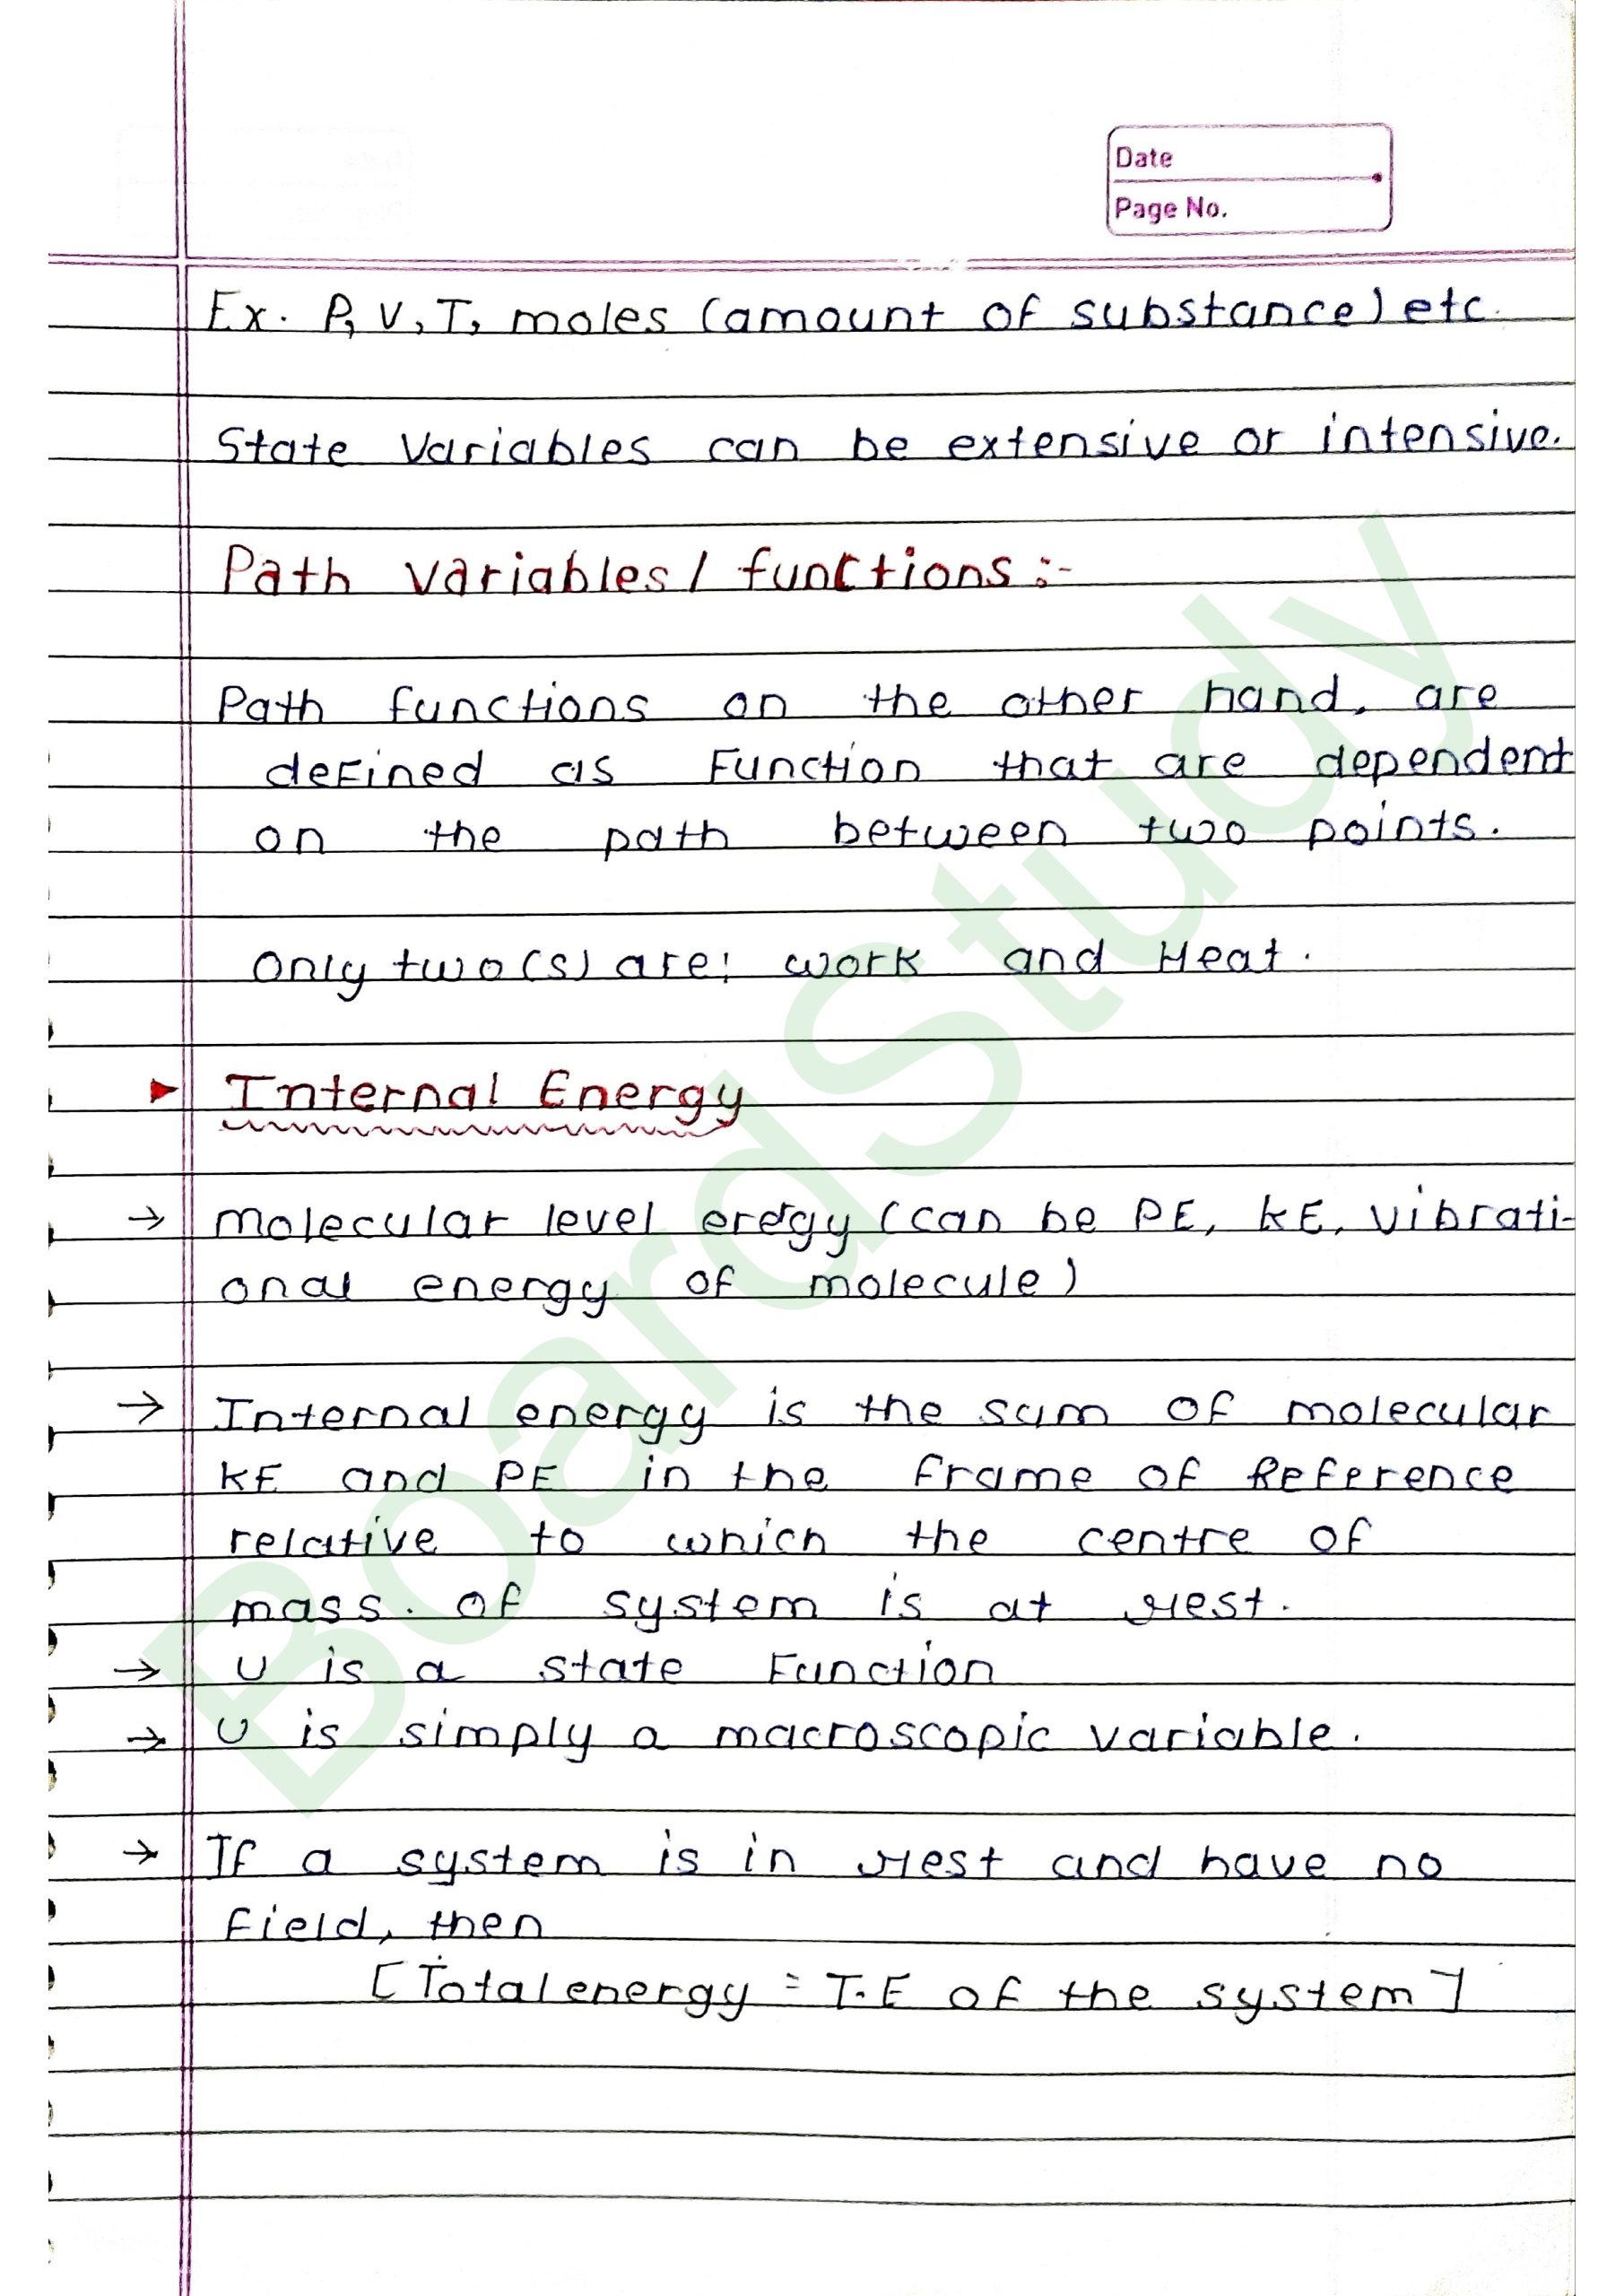 Date
Page No.
Ex. P, V, T, moles (amount of substance) etc.
State variables can be extensive or intensive.
Path variables / functions :-
Path functions on the other hand, are
defined as Function that are dependent
on the path between two points.
Only two(s) are: work and Heat.
Internal Energy
→ molecular level eregy (can be PE, KE, vibrati-
onal energy of molecule)
→ Internal energy is the sum of molecular
KE and PE in the frame of Reference
relative to which the centre of
mass. of system is at rest.
→ U is a state Function
→ U is simply a macroscopic variable.
→ If a system is in rest and have no
field, then
[Total energy = T.E of the system]
BoardStudy